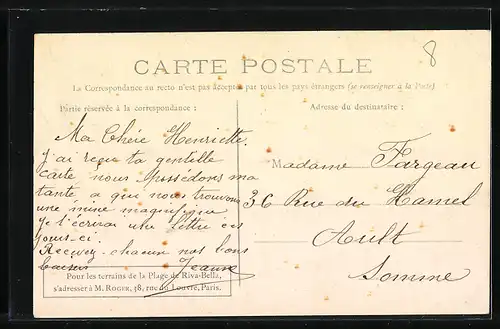 8
CARTE POSTALE
La Correspondance au recto n'est pas acceptée par tous les pays étrangers (se renseigner à la Poste)
Partie réservée à la correspondance :
Adresse du destinataire :
Ma Chère Henriette.
J'ai reçu ta gentille
carte nous possédons ma
tante a que nous trouvons
une mine magnifique
je t'écrirai une lettre ces
jours-ci.
Recevez chacun nos bons
baisers Jeanne
Madame Fargeau
36 Rue du Hamel
Ault
Somme
Pour les terrains de la Plage de Riva-Bella,
s'adresser à M. ROGER, 18, rue du Louvre, Paris.